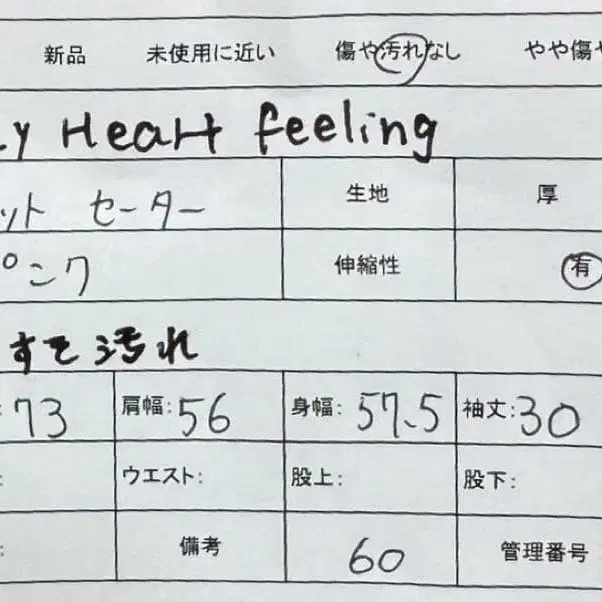 新品 未使用に近い 傷や汚れなし やや傷や
y Heart feeling
ット セーター 生地 厚
ピンク 伸縮性 有
すそ汚れ
: 73 肩幅: 56 身幅: 57.5 袖丈: 30
: ウエスト: 股上: 股下:
: 備考 60 管理番号